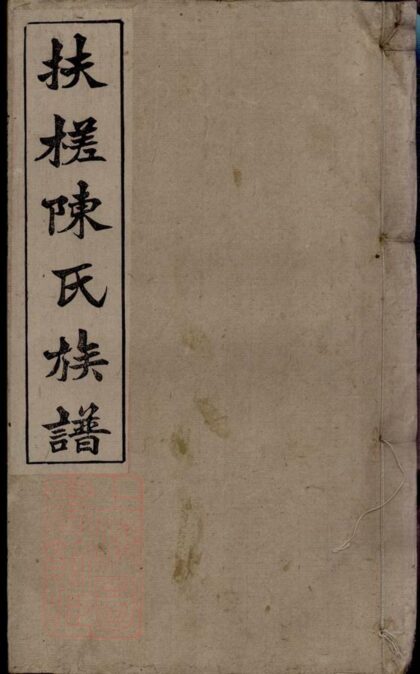 扶槎陳氏族譜